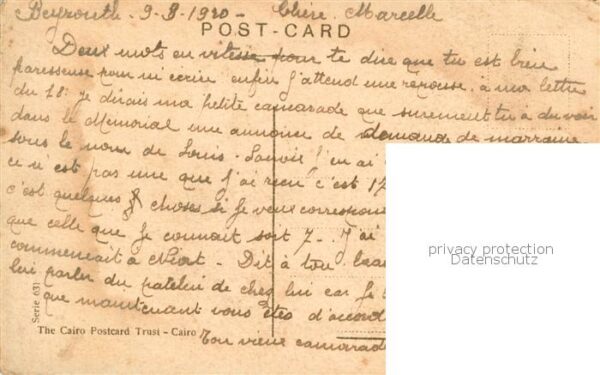 Beyrouth - 9-8-1920 - Chère Marcelle
POST-CARD
Deux mots en vitesse pour te dire que tu est bien
paresseuse pour m'ecrire enfin j'attend une reponse à ma lettre
du 18: je dirais ma petite camarade que surement tu à du voir
dans le Mémorial une annonce de demande de marraine
sous le nom de Louis - j'en ai
ce n'est pas une que j'ai recu c'est 17
c'est quelques choses si je veux correspon
que celle que je connait soit 7 - J'ai
commencait à - Dit à ton
lui parler du patelin de cheq lui car je
que maintenant vous êtes d'accord
Ton vieux camarade
Serie 631
The Cairo Postcard Trust - Cairo
privacy protection
Datenschutz